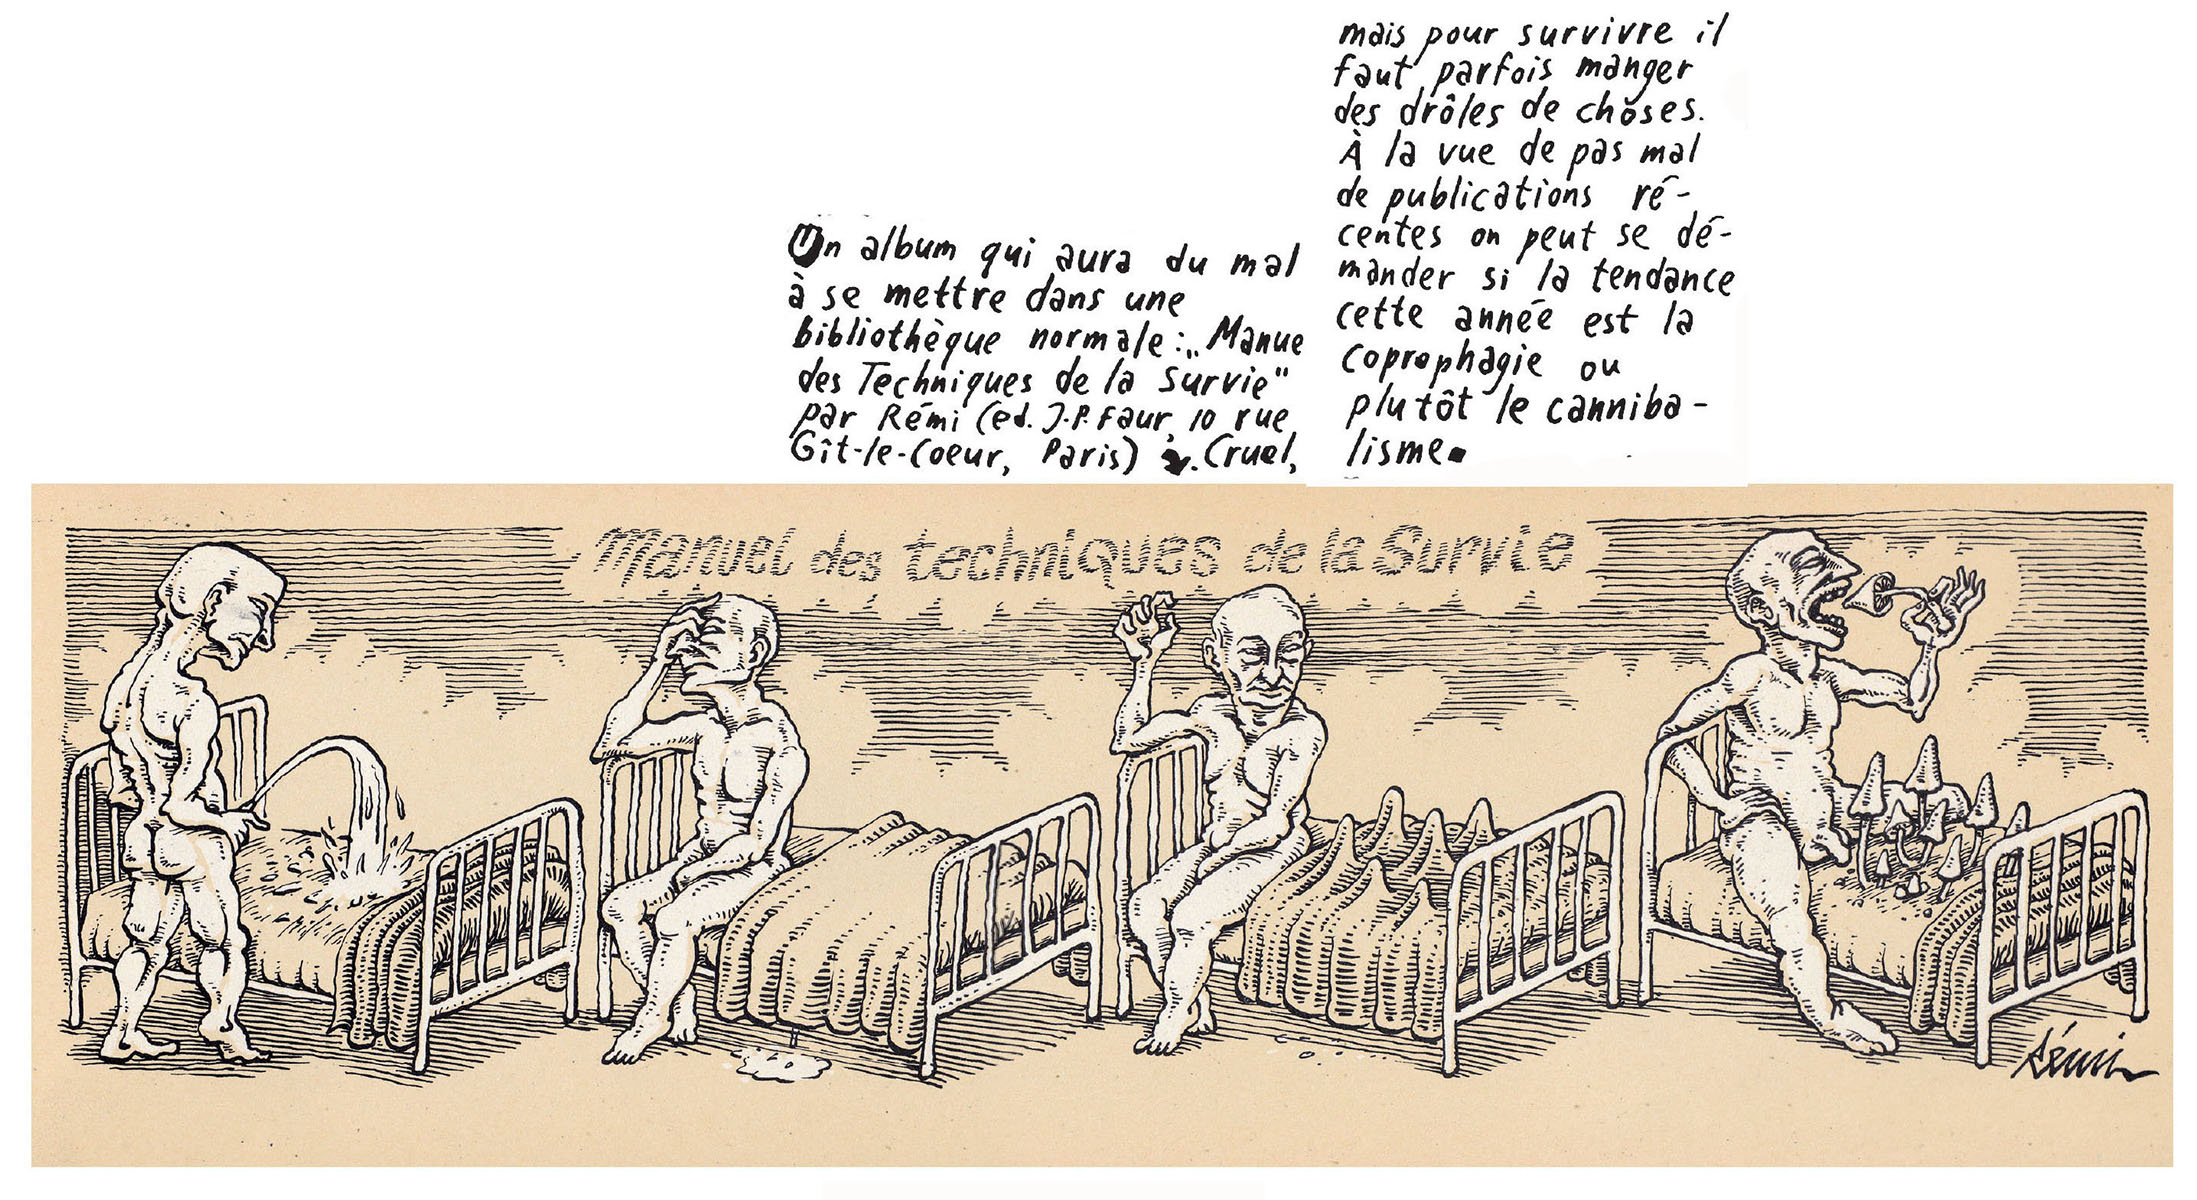 Un album qui aura du mal
à se mettre dans une
bibliothèque normale : „Manue
des Techniques de la Survie"
par Rémi (ed. J-P. Faur, 10 rue
Gît-le-Coeur, Paris) . Cruel,
mais pour survivre il
faut parfois manger
des drôles de choses.
À la vue de pas mal
de publications ré-
centes on peut se dé-
mander si la tendance
cette année est la
coprophagie ou
plutôt le canniba-
lisme.
Manuel des techniques de la Survie
Rémi